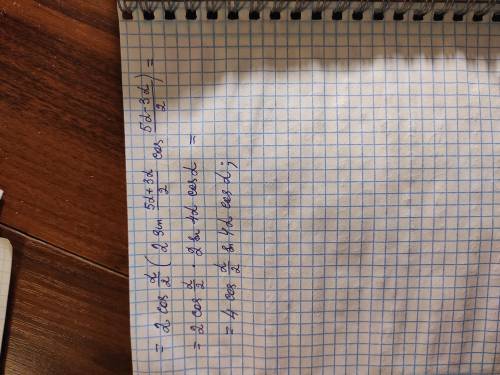 = 2 cos α/2 (2 sin (5α+3α)/2 cos (5α-3α)/2) =
= 2 cos α/2 · 2 sin 4α cos α =
= 4 cos α/2 sin 4α cos α;